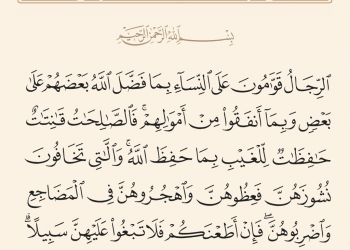 بِسْمِ ٱللَّهِ ٱلرَّحْمَٰنِ ٱلرَّحِيمِ
ٱلرِّجَالُ قَوَّٰمُونَ عَلَى ٱلنِّسَآءِ بِمَا فَضَّلَ ٱللَّهُ بَعْضَهُمْ عَلَىٰ
بَعْضٍ وَبِمَآ أَنفَقُوا۟ مِنْ أَمْوَٰلِهِمْ ۚ فَٱلصَّٰلِحَٰتُ قَٰنِتَٰتٌ
حَٰفِظَٰتٌ لِّلْغَيْبِ بِمَا حَفِظَ ٱللَّهُ ۚ وَٱلَّٰتِى تَخَافُونَ
نُشُوزَهُنَّ فَعِظُوهُنَّ وَٱهْجُرُوهُنَّ فِى ٱلْمَضَاجِعِ
وَٱضْرِبُوهُنَّ ۖ فَإِنْ أَطَعْنَكُمْ فَلَا تَبْغُوا۟ عَلَيْهِنَّ سَبِيلًا ۗ